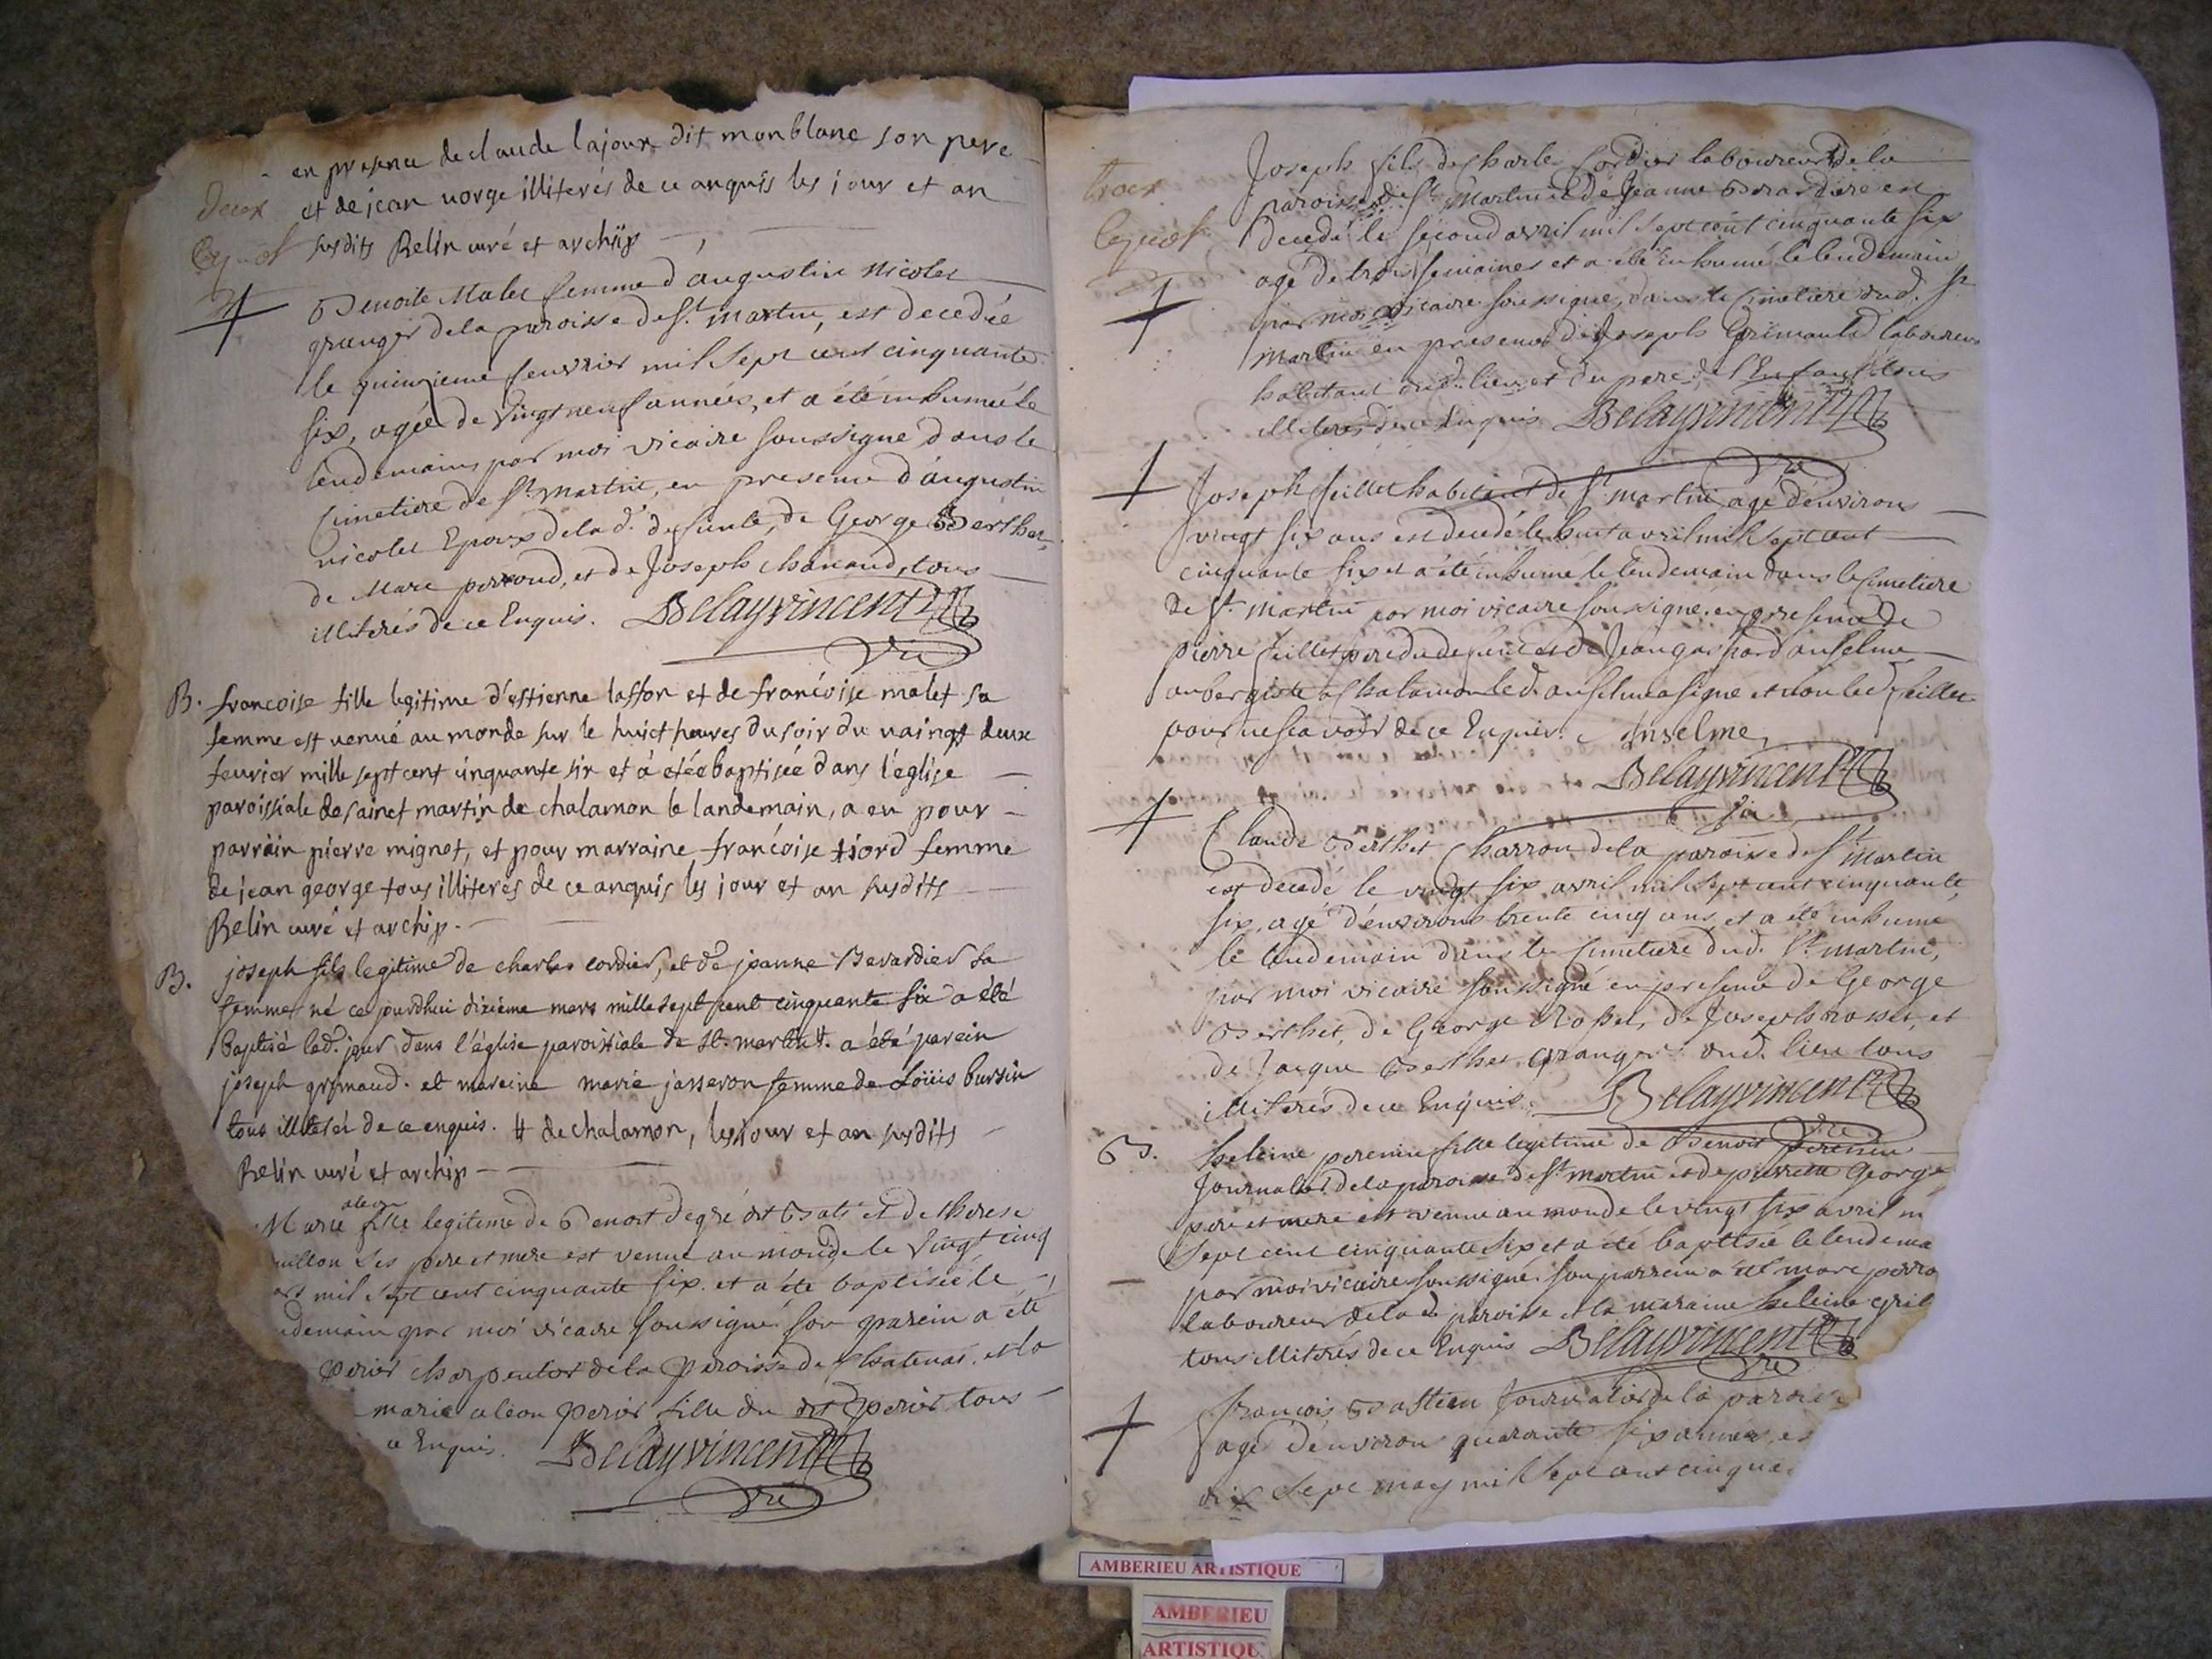 en presence de claude lajoux dit monblanc son pere
deux et de jean vorge illiterés de ce anquis les jour et an
susdits Relin curé et archip
Benoite Malet femme d'augustin Nicolet
granger de la paroisse de St. martin, est decedée
le quinzieme feuvrier mil sept cent cinquante
six, agée de vingt neuf années, et a été inhumée le
lendemain par moi vicaire soussigné dans le
Cimetiere de St. martin, en presence d'augustin
nicolet Epoux de la d. defunte, de George Berthet,
de Marc perroud, et de Joseph chanaud, tous
illiterés de ce Enquis. Belayvincent
vre
B. francoise fille legitime d'estienne laffon et de françoise malet sa
femme est venué au monde sur le huict heures du soir du vaingt deux
feurier mille sept cent cinquante six et a etée baptisée dans l'eglise
paroissiale de sainct martin de chalamon le landemain, a eu pour
parrain pierre mignot, et pour marraine françoise tiord femme
de jean george tous illiteres de ce anquis les jour et an susdits
Relin curé et archip.
B. joseph fils legitime de charles cordier, et de jeanne Berardier sa
femme né ce jourdhui dixiéme mars mille sept cent cinquante six a été
baptisé led. jour dans l'église paroissiale de St. martin #. a été parein
joseph grimaud. et mareine marie janseron femme de Loüis bursin
tous illiterés de ce enquis. # de chalamon, les jour et an susdits
Relin curé et archip
aleon
Marie fille legitime de Benoit degré dit Bati et de therese
uillon ses pere et mere est venue au monde le vingt cinq
ars mil sept cent cinquante six. et a été baptisée le
demain par moi vicaire soussigné son parein a été
perier charpentier de la paroisse de chatenai. et la
marie aleon perier fille du dit perier tous
ce Enquis. Belayvincent
vre
trois Joseph fils de Charle Cordier laboureur de la
paroisse de St. Martin et de Jeanne Berardiere est
decedé le second avril mil sept cent cinquante six
agé de trois semaines et a été inhumé le lendemain
par moi vicaire soussigné, dans le Cimetiere dud. St.
Martin en presence de Joseph Grimaud laboureur
habitant dud. lieu et du pere de l'Enfant tous
illiterés de ce Enquis Belayvincent
vre
Joseph feillet habitant de St. martin agé d'environ
vingt six ans est decedé le huit avril mil sept cent
cinquante six et a été inhumé le lendemain dans le Cimetiere
de St. martin par moi vicaire soussigné en presence de
pierre feillet pere du defunt et de Jean gaspard anselme
aubergiste a Chalamon led. anselme a signé et non led. feillet
pour ne sçavoir de ce Enquis. Anselme,
Belayvincent
vre
Claude Berthet Charron de la paroisse de St. Martin
est decedé le vingt six avril mil sept cent cinquante
six, agé d'environ trente cinq ans, et a été inhumé
le lendemain dans le Cimetiere dud. St. martin,
par moi vicaire soussigné en presence de George
Berthet, de George Rosset, de Joseph rosset, et
de Jacque Berthet granger dud. lieu tous
illiterés de ce Enquis. Belayvincent
vre
B. heleine perenin fille legitime de Benoit perenin
Journalier de la paroisse de St. martin et de pierrette George
pere et mere est venue au monde le vingt six avril m
sept cent cinquante six et a été baptisée le lendema
par moi vicaire soussigné. son parrein a été marc perro
laboureur de la d. paroisse et la maraine heleine gril
tous illiterés de ce Enquis Belayvincent
vre
françois Bastien Journalier de la parois
agé d'environ quarante six années, es
dix sept may mil sept cent cinqua
AMBERIEU ARTISTIQUE
AMBERIEU
ARTISTIQU